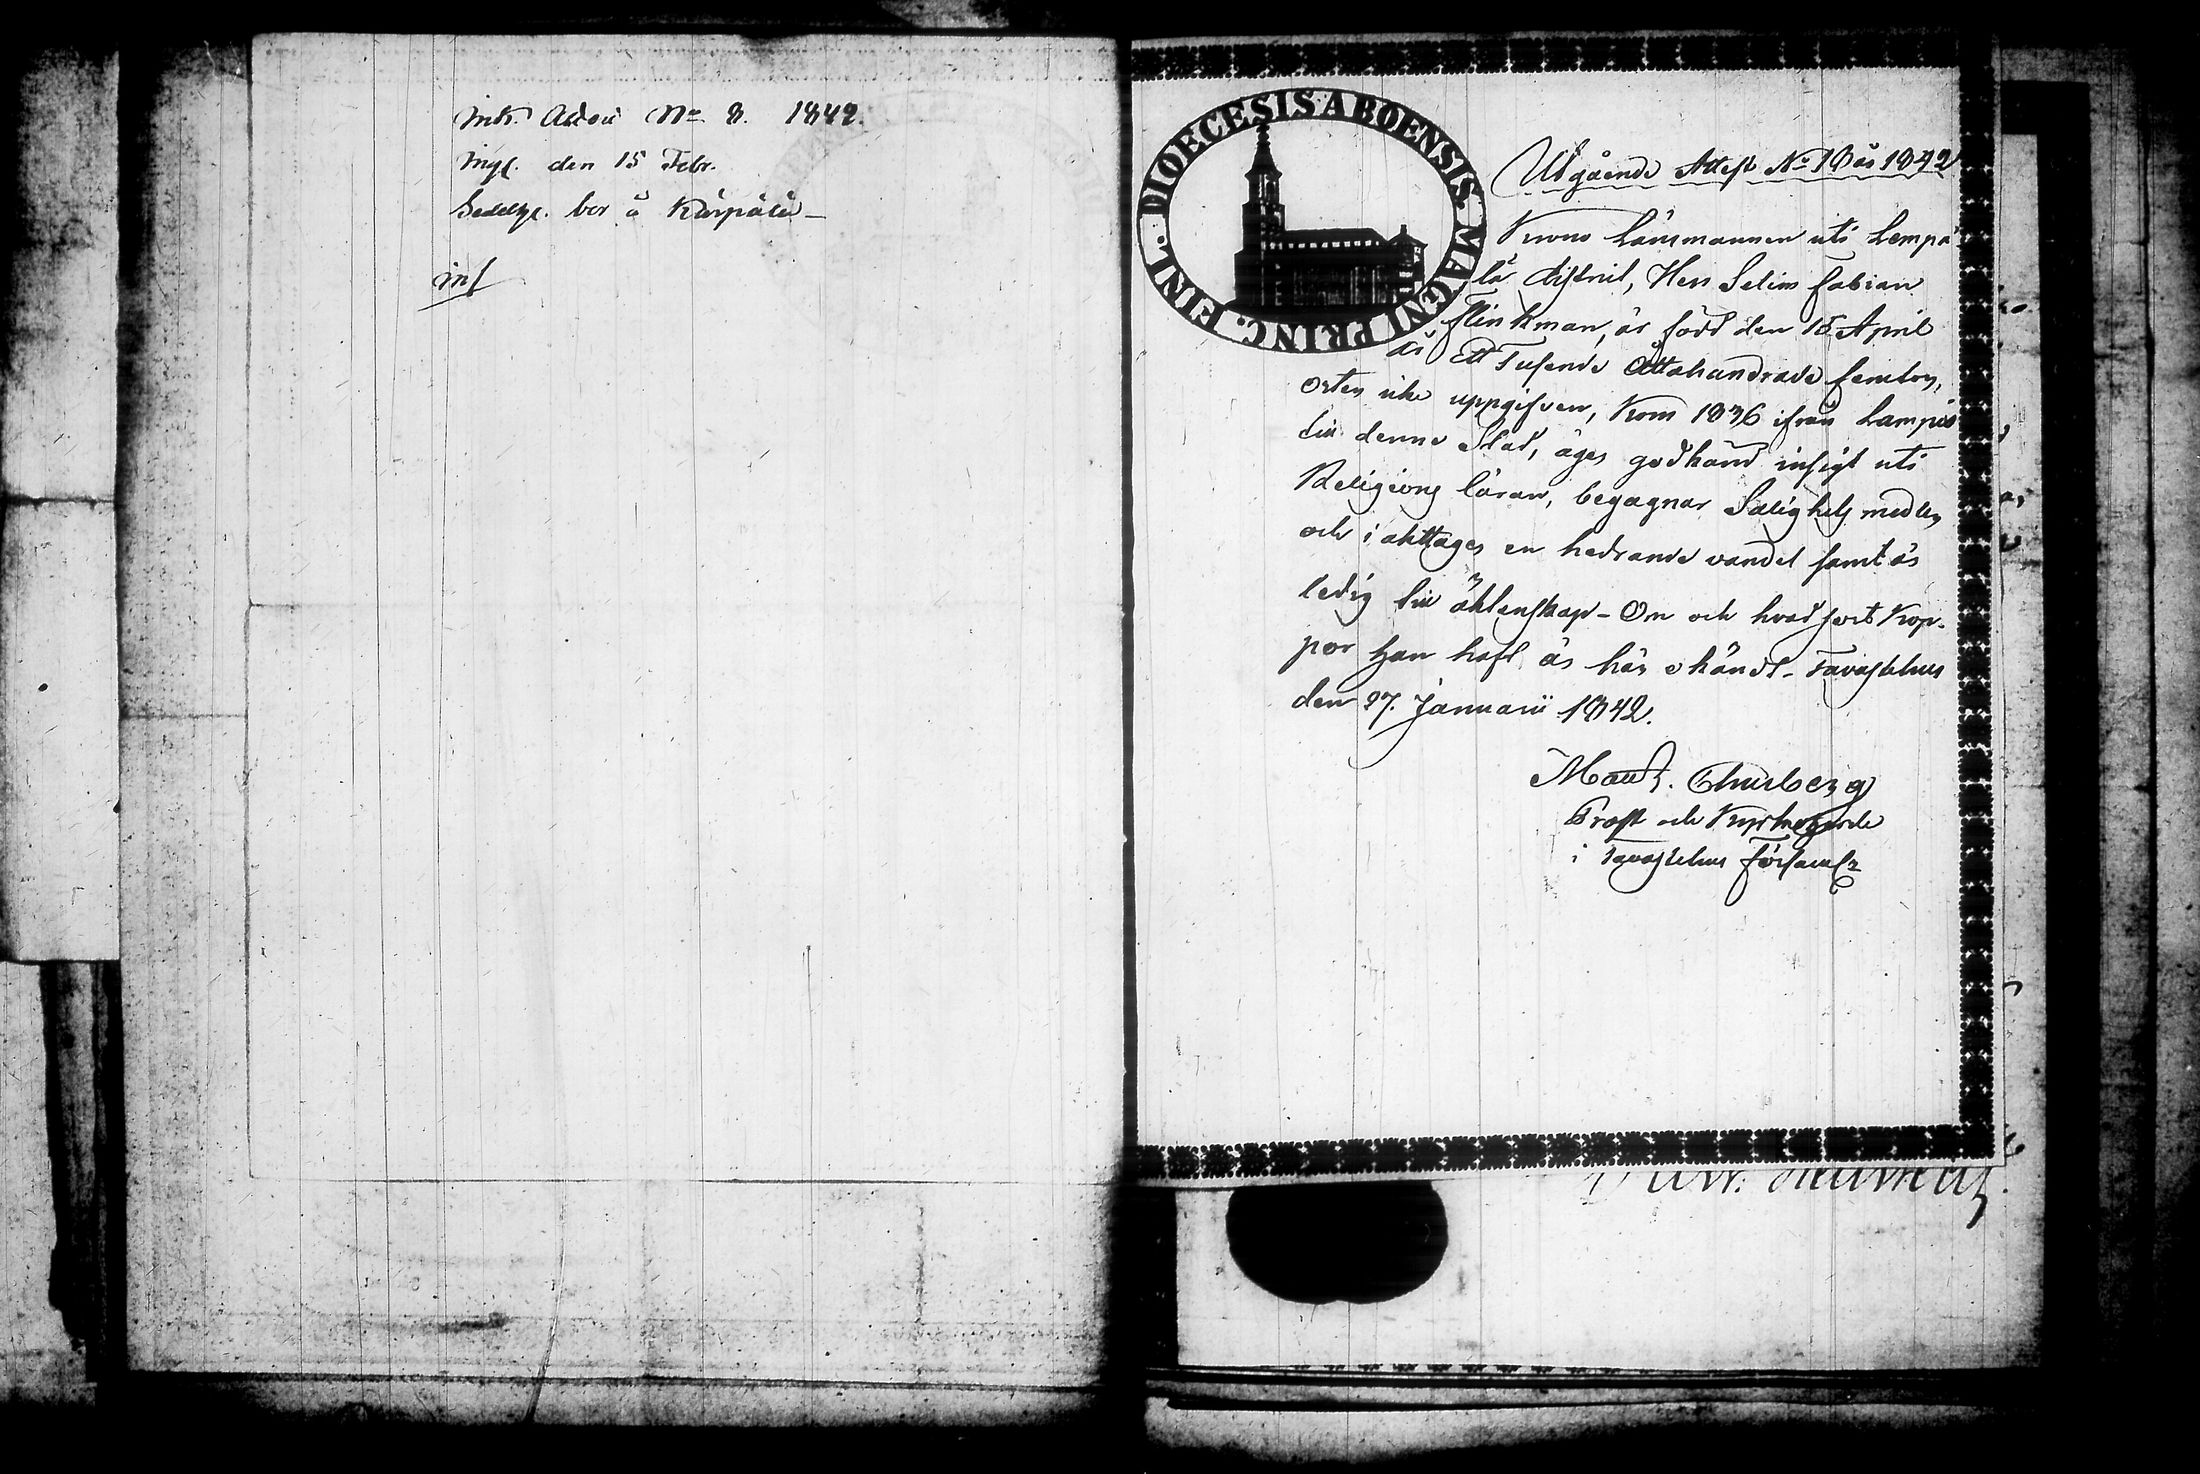 Ink. Attest No 8. 1842.
Ingl. den 15 Febr.
Sedelhr. bor å Kurpälä –
inf
DIOECESIS ABOENSIS. MAGNI PRINC. FINL.
Utgående Attest No 10 år 1842
Krono Länsmannen uti Lempä
lä distrikt, Herr Selim Fabian
Flinkman, är född den 15 April
år Ett Tusende Åttahundrade femton,
orten icke uppgifven, Kom 1836 ifrån Lampis
till denne Stad, äger godkänd insigt uti
Religions läran, begagnar Salighets medlen
och i akttager en hedrande vandel samt är
ledig till äktenskap – Om och hvad sort Kop-
por Han haft är här okändt – Tavastehus
den 27. Januarii 1842.
Maur. Thurberg
Prost och Kyrkoherde
i Tavastehus Församl.